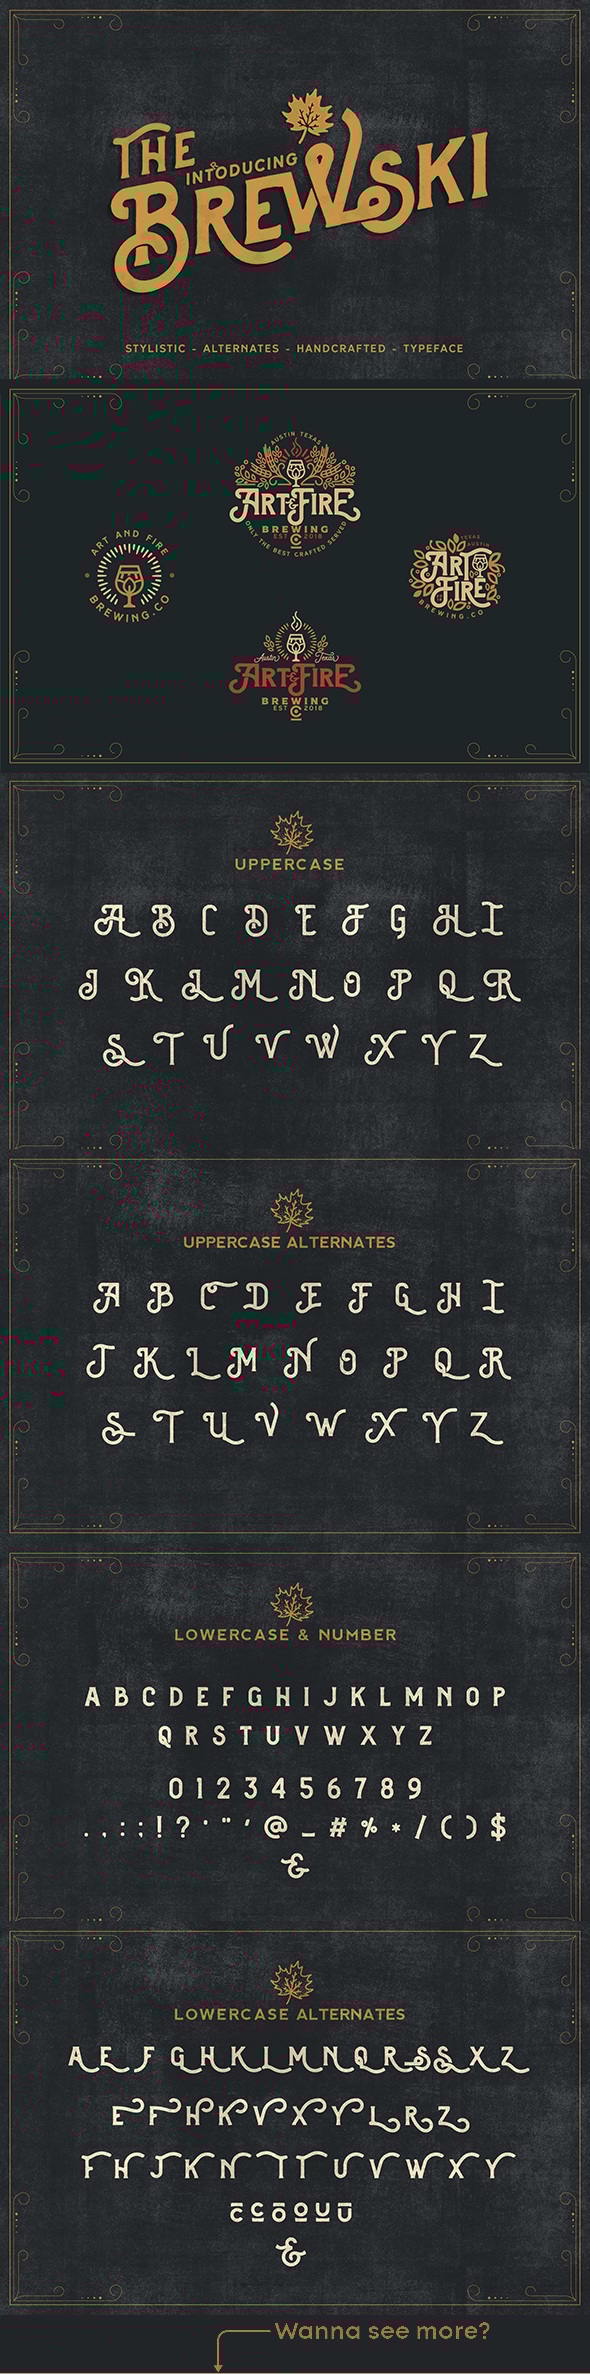 THE
INTODUCING
BREWSKI
STYLISTIC - ALTERNATES - HANDCRAFTED - TYPEFACE
AUSTIN TEXAS
ART & FIRE
BREWING
EST CO 2018
ONLY THE BEST CRAFTED SERVED
ART AND FIRE
BREWING.CO
TEXAS
AUSTIN
ART
FIRE
BREWING.CO
Austin Texas
ART & FIRE
BREWING
EST CO 2018
UPPERCASE
A B C D E F G H I
J K L M N O P Q R
S T U V W X Y Z
UPPERCASE ALTERNATES
A B C D E F G H I
J K L M N O P Q R
S T U V W X Y Z
LOWERCASE & NUMBER
A B C D E F G H I J K L M N O P
Q R S T U V W X Y Z
0 1 2 3 4 5 6 7 8 9
. , : ; ! ? ' " ' @ _ # % * / ( ) $
&
LOWERCASE ALTERNATES
A E F G H K L M N Q R S S X Z
E F H K V X Y L R Z
F H J K N T T U V W X Y
C C O O U U
&
Wanna see more?